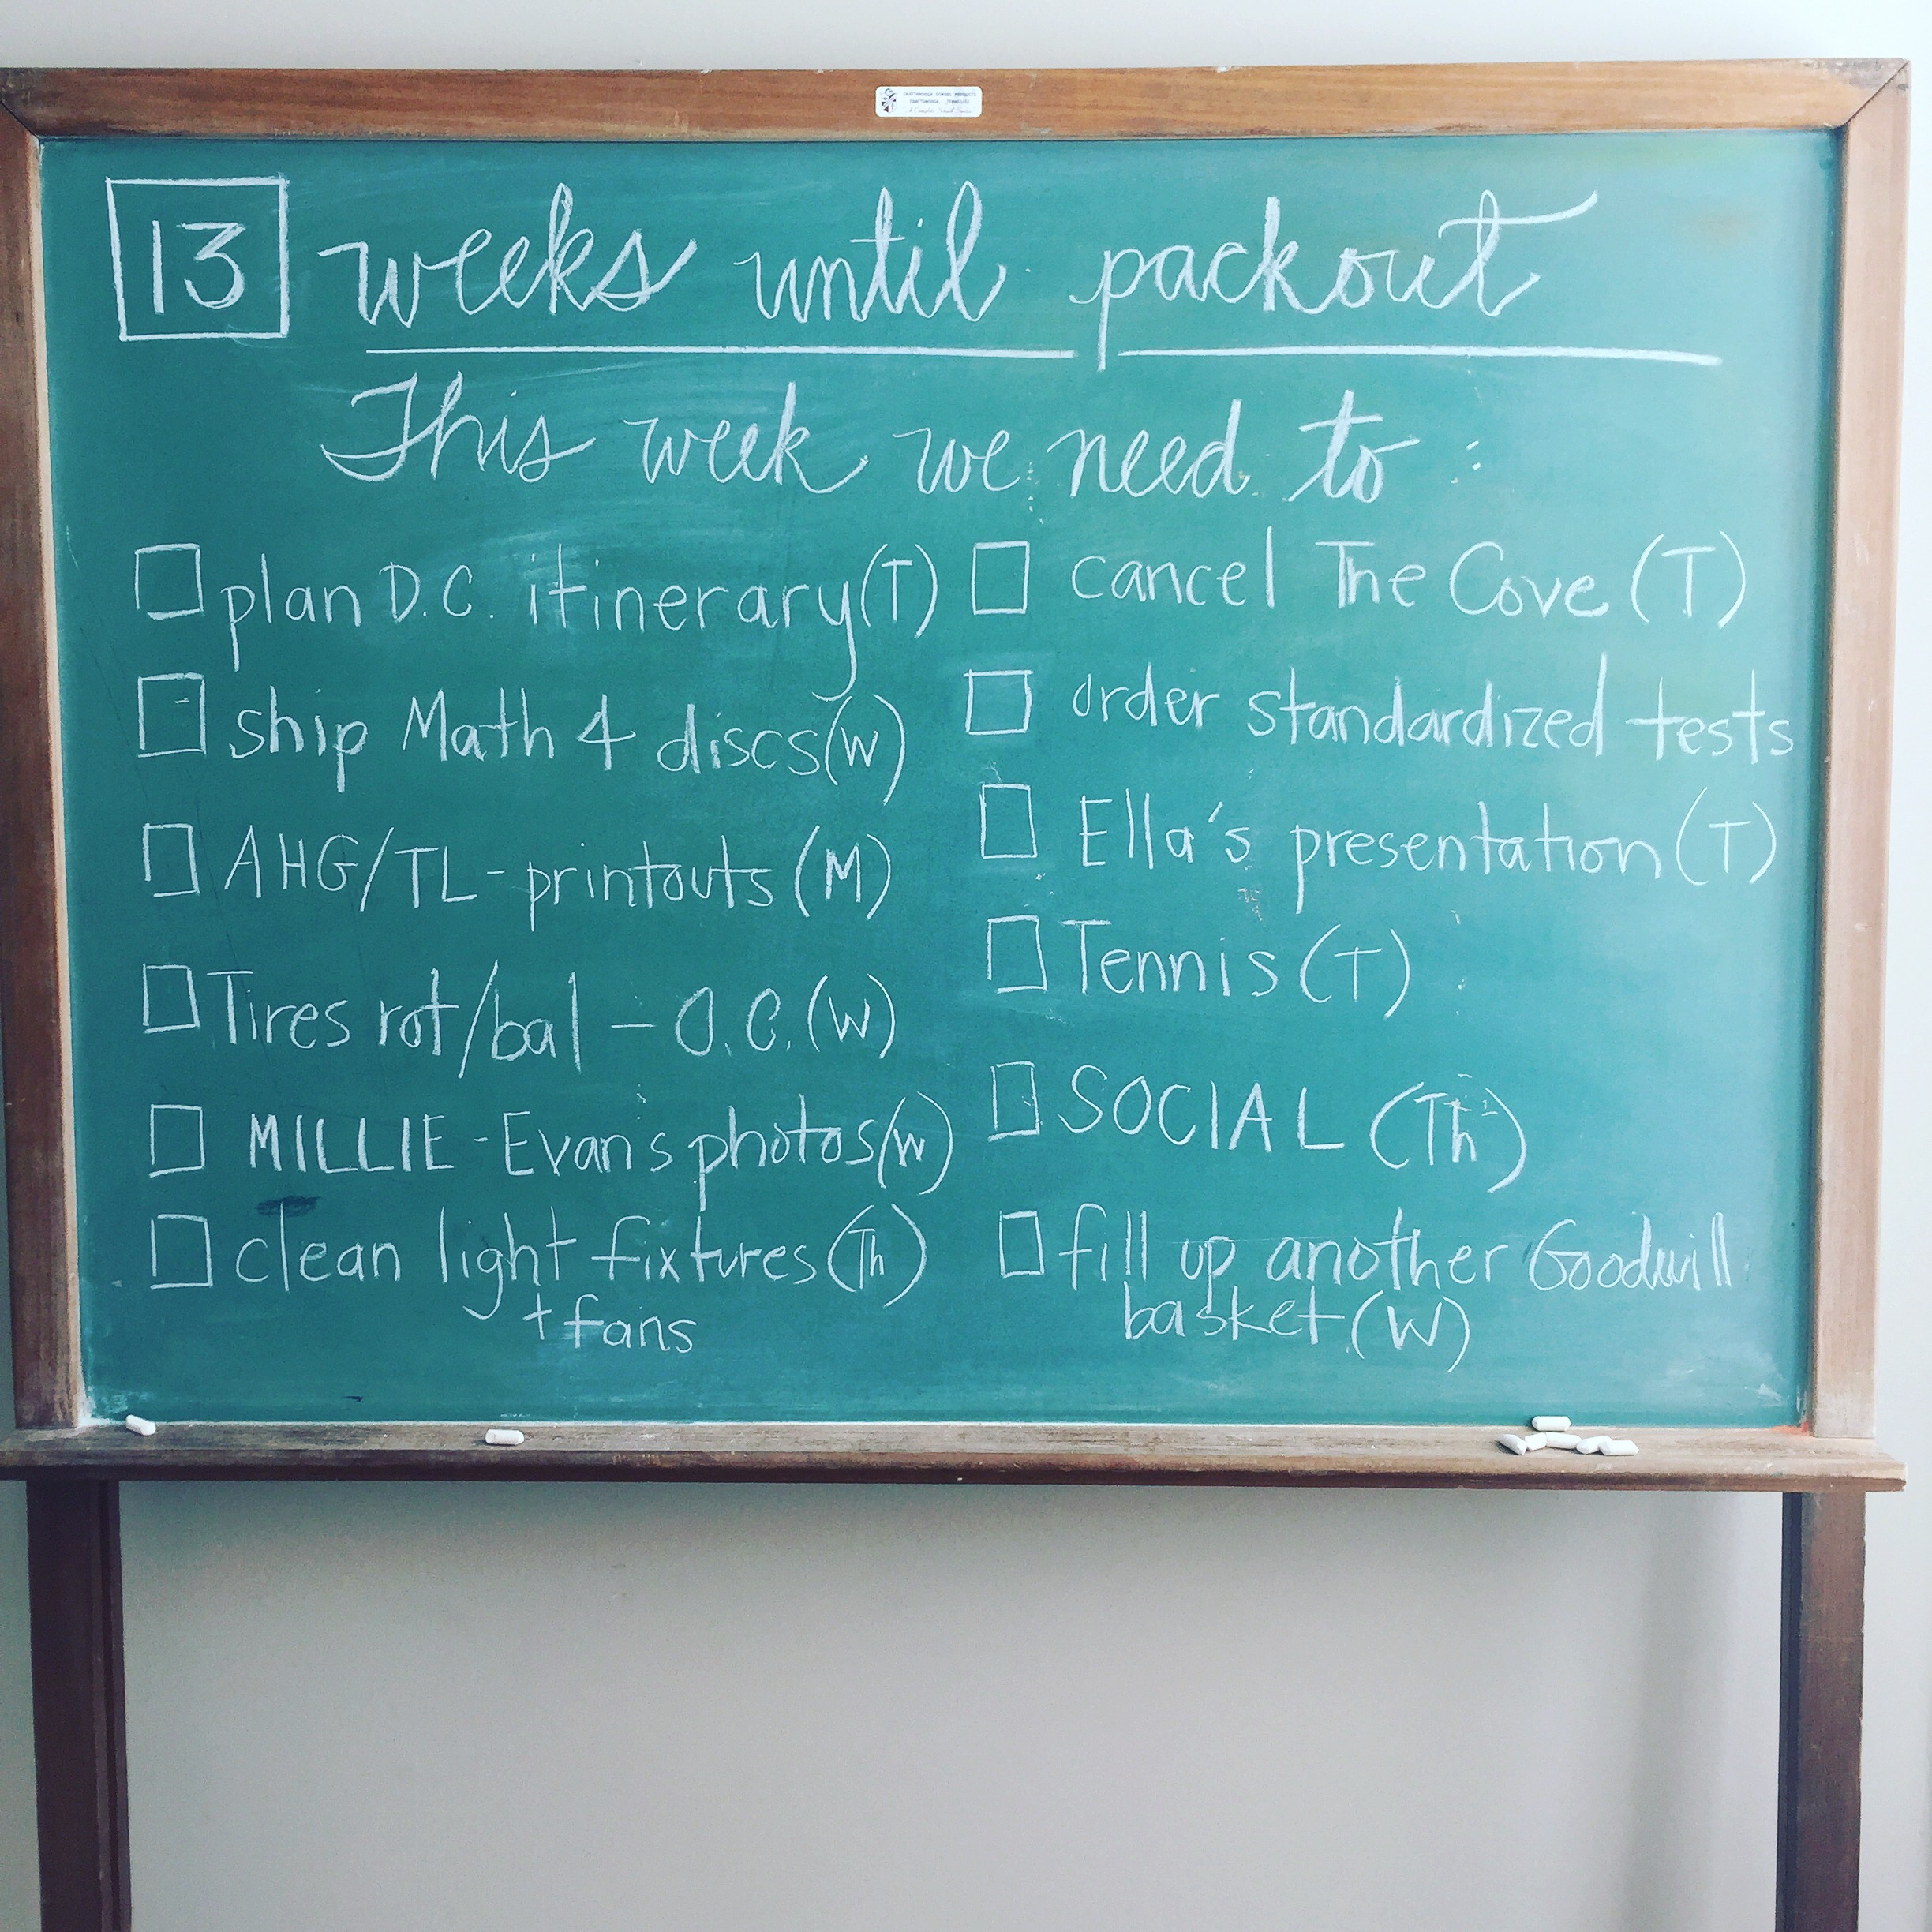 CHATTANOOGA SCHOOL PRODUCTS
CHATTANOOGA, TENNESSEE
13 weeks until packout
This week we need to :
plan D.C. itinerary (T)
ship Math 4 discs (W)
AHG/TL - printouts (M)
Tires rot/bal - O.C. (W)
MILLIE - Evan's photos (W)
clean light fixtures (Th)
+ fans
cancel The Cove (T)
order standardized tests
Ella's presentation (T)
Tennis (T)
SOCIAL (Th)
fill up another Goodwill
basket (W)